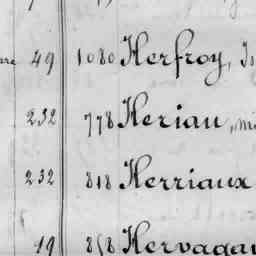 49 1080 Herfroy,
232 778 Heriau,
232 818 Herriaux
49 858 Hervagau